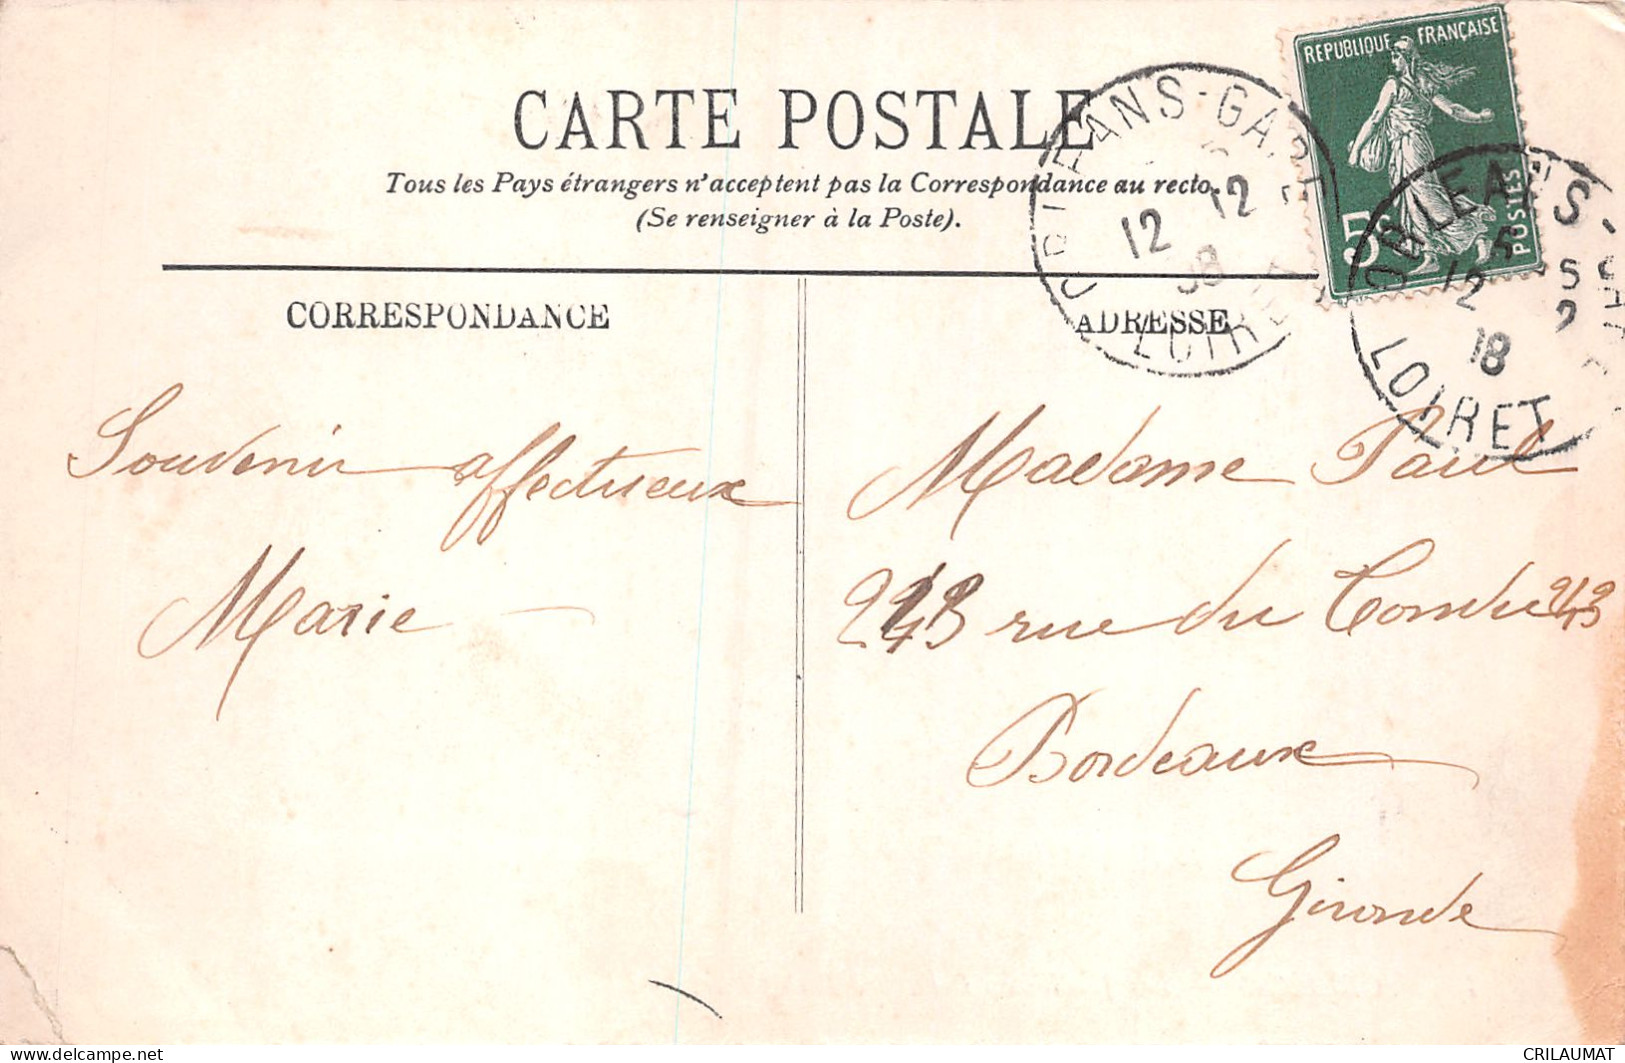 CARTE POSTALE
Tous les Pays étrangers n'acceptent pas la Correspondance au recto.
(Se renseigner à la Poste).
REPUBLIQUE FRANÇAISE
5c POSTES
ORLEANS-GARE
12 12
08
LOIRET
ORLEANS-GARE
12
LOIRET
CORRESPONDANCE
ADRESSE
Souvenir affectueux
Marie
Madame Paul
243 rue du 243
Bordeaux
Gironde
delcampe.net
CRILAUMAT